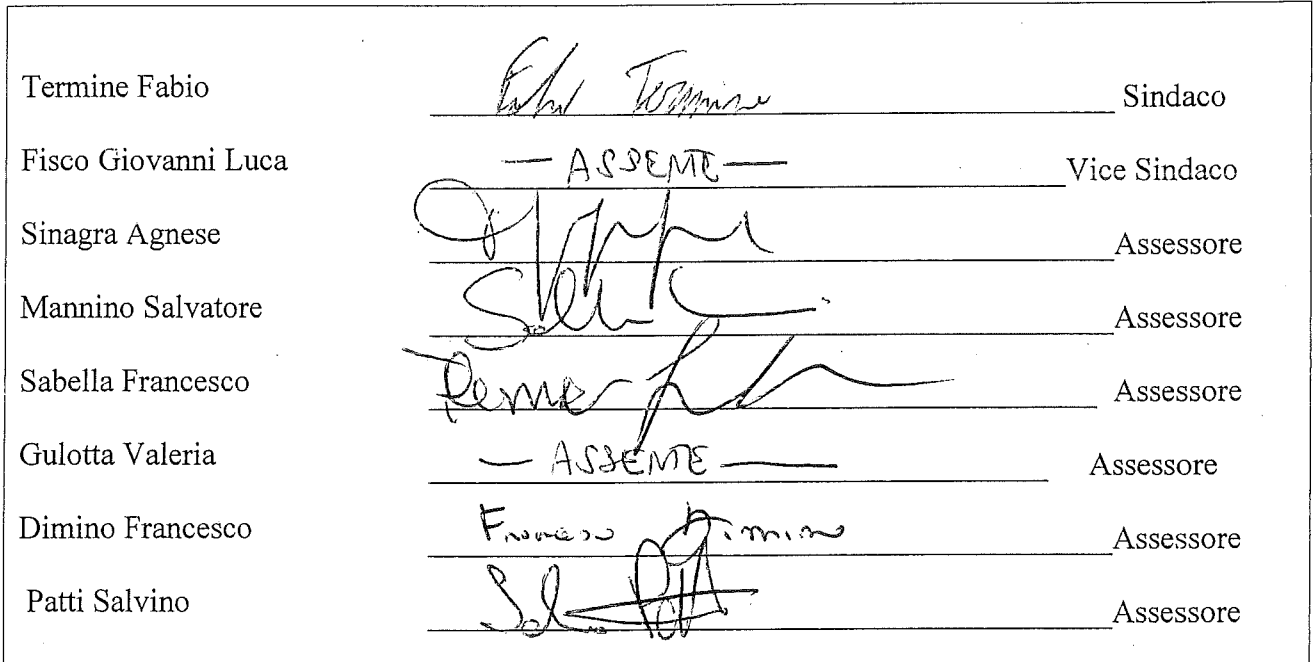 Termine Fabio Fabio Termine Sindaco
Fisco Giovanni Luca — ASSENTE — Vice Sindaco
Sinagra Agnese Assessore
Mannino Salvatore Assessore
Sabella Francesco Assessore
Gulotta Valeria — ASSENTE — Assessore
Dimino Francesco Francesco Dimino Assessore
Patti Salvino Assessore